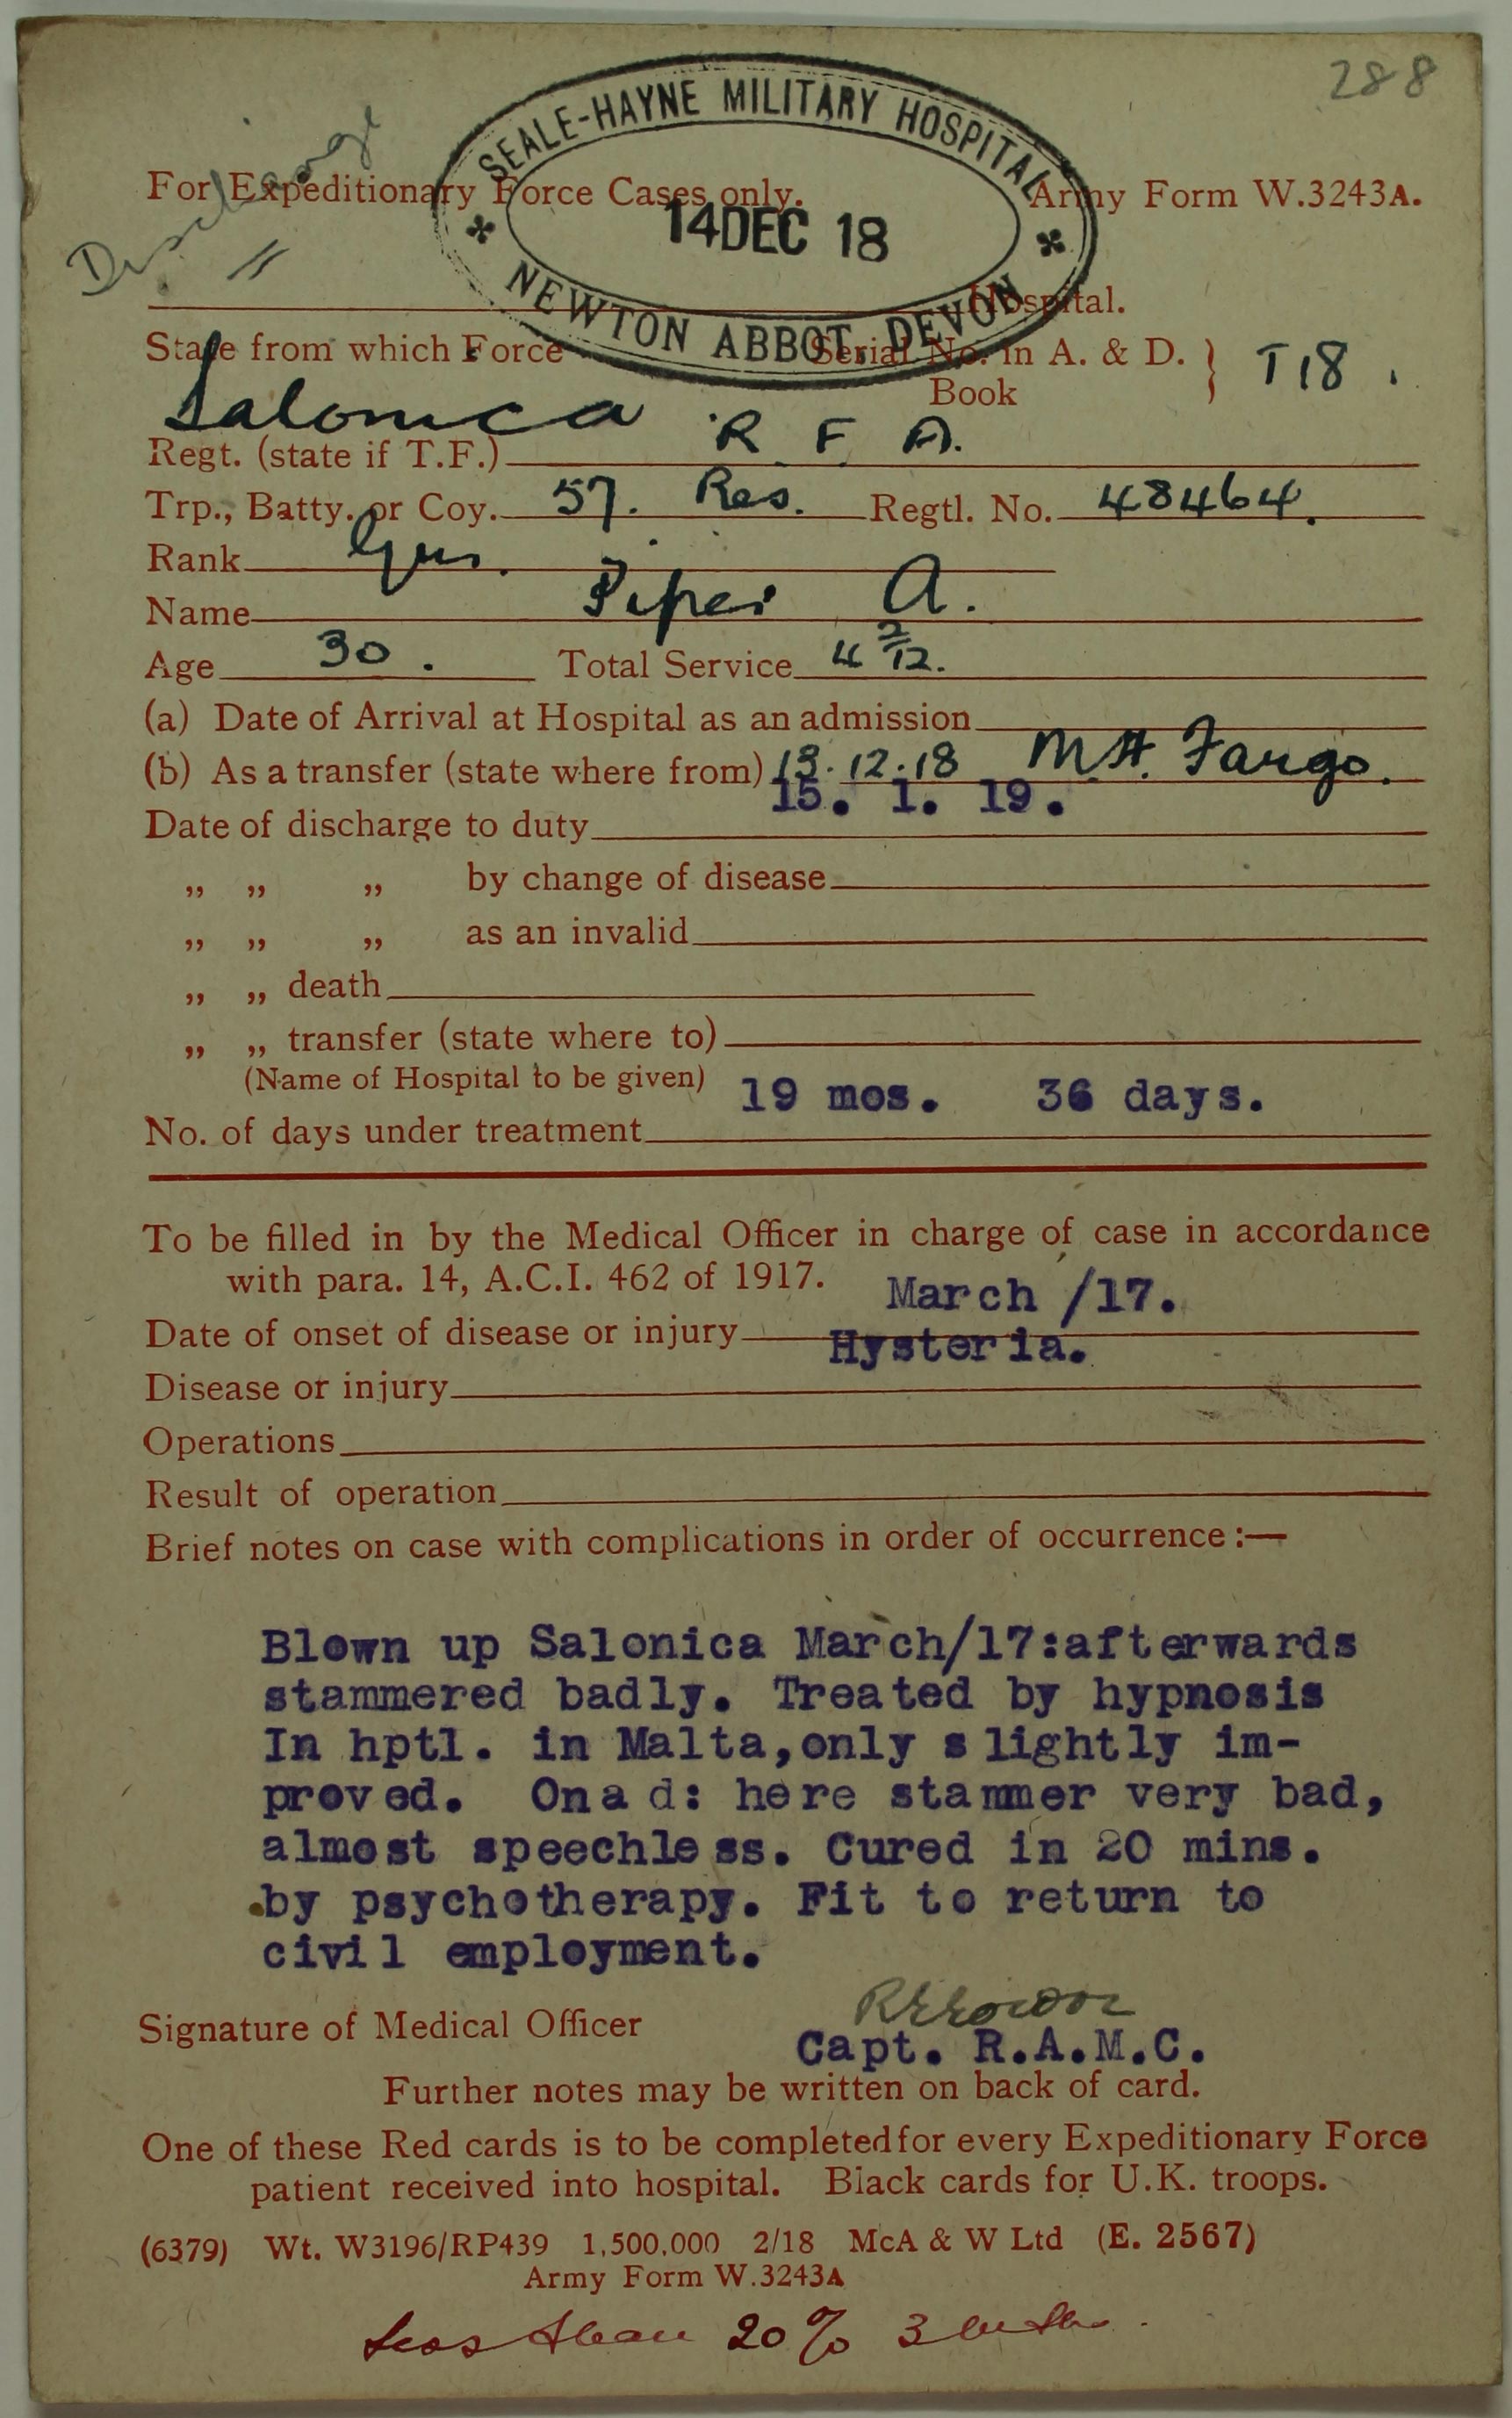 288
Discharge
SEALE-HAYNE MILITARY HOSPITAL
14 DEC 18
NEWTON ABBOT, DEVON
For Expeditionary Force Cases only. Army Form W.3243A.
Hospital.
State from which Force Serial No. in A. & D. } T18.
Book
Salonica R F A.
Regt. (state if T.F.)
Trp., Batty. or Coy. 57. Res. Regtl. No. 48464.
Rank Gnr.
Name Piper A.
Age 30. Total Service 4 2/12.
(a) Date of Arrival at Hospital as an admission
(b) As a transfer (state where from) 13.12.18 M.H. Fargo.
15. 1. 19.
Date of discharge to duty
„ „ „ by change of disease
„ „ „ as an invalid
„ „ death
„ „ transfer (state where to)
(Name of Hospital to be given)
19 mos. 36 days.
No. of days under treatment
To be filled in by the Medical Officer in charge of case in accordance
with para. 14, A.C.I. 462 of 1917.
March /17.
Date of onset of disease or injury
Hysteria.
Disease or injury
Operations
Result of operation
Brief notes on case with complications in order of occurrence :—
Blown up Salonica March/17:afterwards
stammered badly. Treated by hypnosis
In hptl. in Malta,only slightly im-
proved. On ad: here stammer very bad,
almost speechless. Cured in 20 mins.
by psychotherapy. Fit to return to
civil employment.
Signature of Medical Officer
Capt. R.A.M.C.
Further notes may be written on back of card.
One of these Red cards is to be completed for every Expeditionary Force
patient received into hospital. Black cards for U.K. troops.
(6379) Wt. W3196/RP439 1,500,000 2/18 McA & W Ltd (E. 2567)
Army Form W.3243A
Less than 20% 3